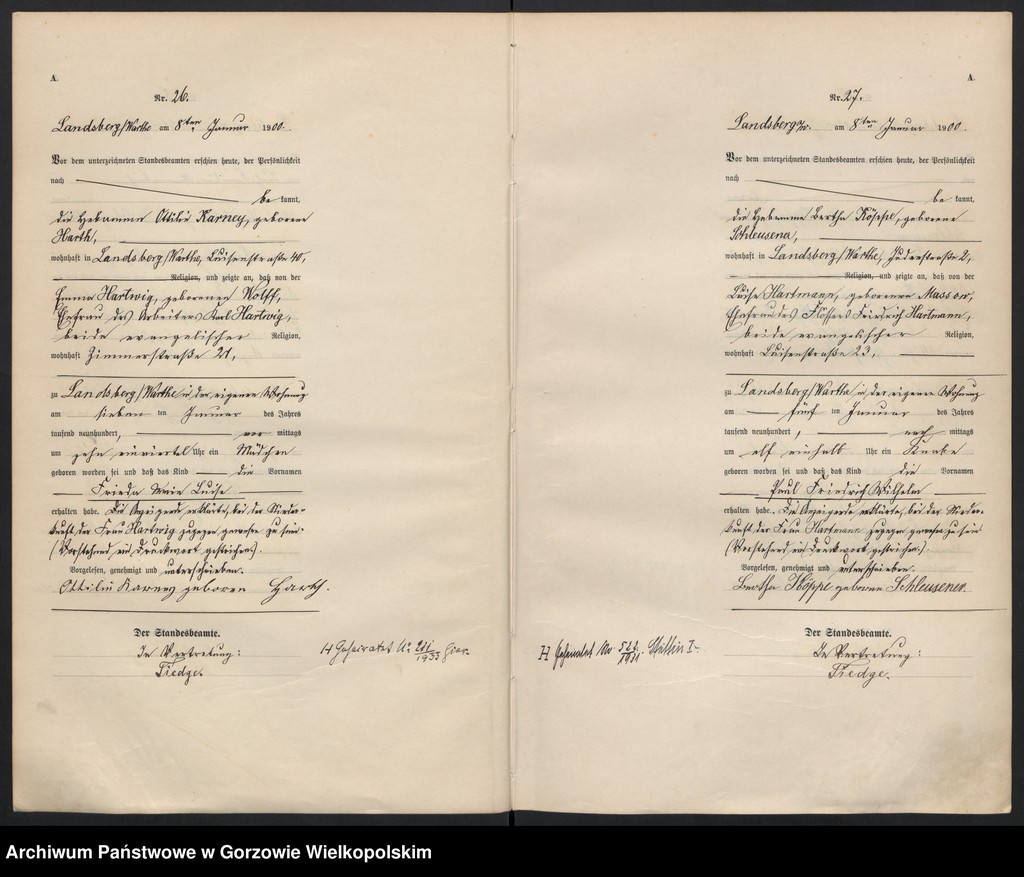 A.
Nr. 26.
Landsberg/Warthe am 8ten Januar 1900.
Vor dem unterzeichneten Standesbeamten erschien heute, der Persönlichkeit
nach
be kannt,
die Hebamme Ottilie Karney, geborene
Harth,
wohnhaft in Landsberg/Warthe, Luisenstraße 40,
Religion, und zeigte an, daß von der
Emma Hartwig, geborenen Wolff,
Ehefrau des Arbeiters Karl Hartwig,
beide evangelischer Religion,
wohnhaft Zimmerstraße 21,
zu Landsberg/Warthe in der eigenen Wohnung
am sieben ten Januar des Jahres
tausend neunhundert, vor mittags
um zehn einviertel Uhr ein Mädchen
geboren worden sei und daß das Kind die Vornamen
Frieda Marie Luise
erhalten habe. Die Anzeigende erklärte, bei der Nieder-
kunft der Frau Hartwig zugegen gewesen zu sein.
(Vorstehend ein Druckwort gestrichen.)
Vorgelesen, genehmigt und unterschrieben.
Ottilie Karney geboren Harth.
Der Standesbeamte.
In Vertretung:
Tiedge.
H Geheiratet No 211/1933 hier
A.
Nr. 27.
Landsberg a/W. am 8ten Januar 1900.
Vor dem unterzeichneten Standesbeamten erschien heute, der Persönlichkeit
nach
be kannt,
die Hebamme Bertha Köppe, geborene
Schleusener,
wohnhaft in Landsberg/Warthe, Judenstraße 2,
Religion, und zeigte an, daß von der
Luise Hartmann, geborenen Massow,
Ehefrau des Flößers Friedrich Hartmann,
beide evangelischer Religion,
wohnhaft Luisenstraße 23,
zu Landsberg/Warthe in der eigenen Wohnung
am fünf ten Januar des Jahres
tausend neunhundert, nach mittags
um elf einhalb Uhr ein Knabe
geboren worden sei und daß das Kind die Vornamen
Paul Friedrich Wilhelm
erhalten habe. Die Anzeigende erklärte, bei der Nieder-
kunft der Frau Hartmann zugegen gewesen zu sein
(Vorstehend ein Druckwort gestrichen.)
Vorgelesen, genehmigt und unterschrieben.
Bertha Köppe geboren Schleusener.
Der Standesbeamte.
In Vertretung:
Tiedge.
H Geheiratet No Stettin I
Archiwum Państwowe w Gorzowie Wielkopolskim